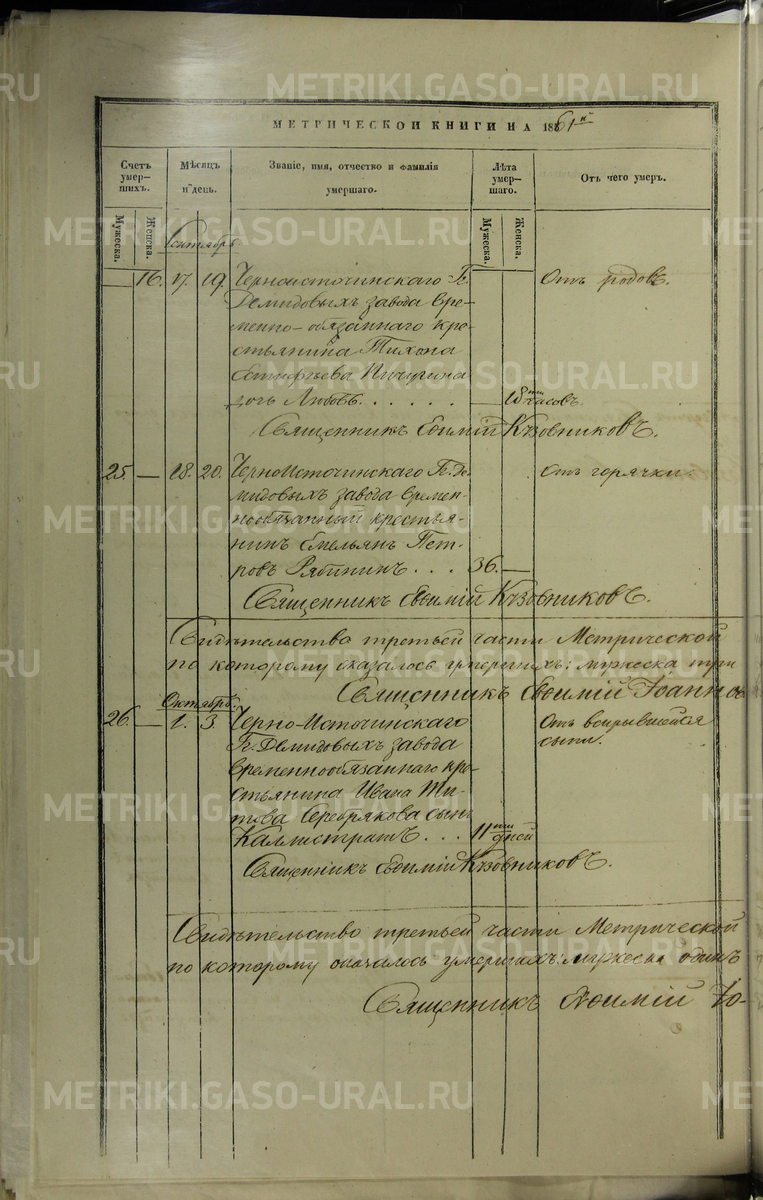 МЕТРИЧЕСКОЙ КНИГИ НА 1861й
Счетъ умер-шихъ.
Мѣсяцъ и день.
Званіе, имя, отчество и фамилія умершаго.
Лѣта умер-шаго.
Отъ чего умеръ.
Мужеска.
Женска.
Мужеска.
Женска.
Сентябрь
— 16. 17. 19. Черноисточинскаго Г. Отъ родовъ.
Демидовыхъ завода вре-
менно-обязаннаго кре-
стьянина Тихона
Пичурина
дочь Любовь. . . . . . — часовъ.
Священникъ Евѳимій Кузовниковъ.
25. — 18. 20. Черноисточинскаго Г. Де- Отъ горячки.
мидовыхъ завода времен-
нообязанный крестья-
нинъ Емельянъ Пет-
ровъ Рябининъ . . . 36. —
Священникъ Евѳимій Кузовниковъ.
Свидѣтельство третьей части Метрической
по которому оказалось умершихъ: мужеска три
Священникъ Евѳимій Іоанновъ
Октябрь.
26. — 1. 3. Черно-Источинскаго Отъ вскрывшейся
Г. Демидовыхъ завода сыпи.
временнообязаннаго кре-
стьянина Ивана Ти-
това Серебрякова сынъ
Каллистратъ . . . 11ти дней
Священникъ Евѳимій Кузовниковъ.
Свидѣтельство третьей части Метрической
по которому оказалось умершихъ: мужеска одинъ
Священникъ Евѳимій Іо-
METRIKI.GASO-URAL.RU